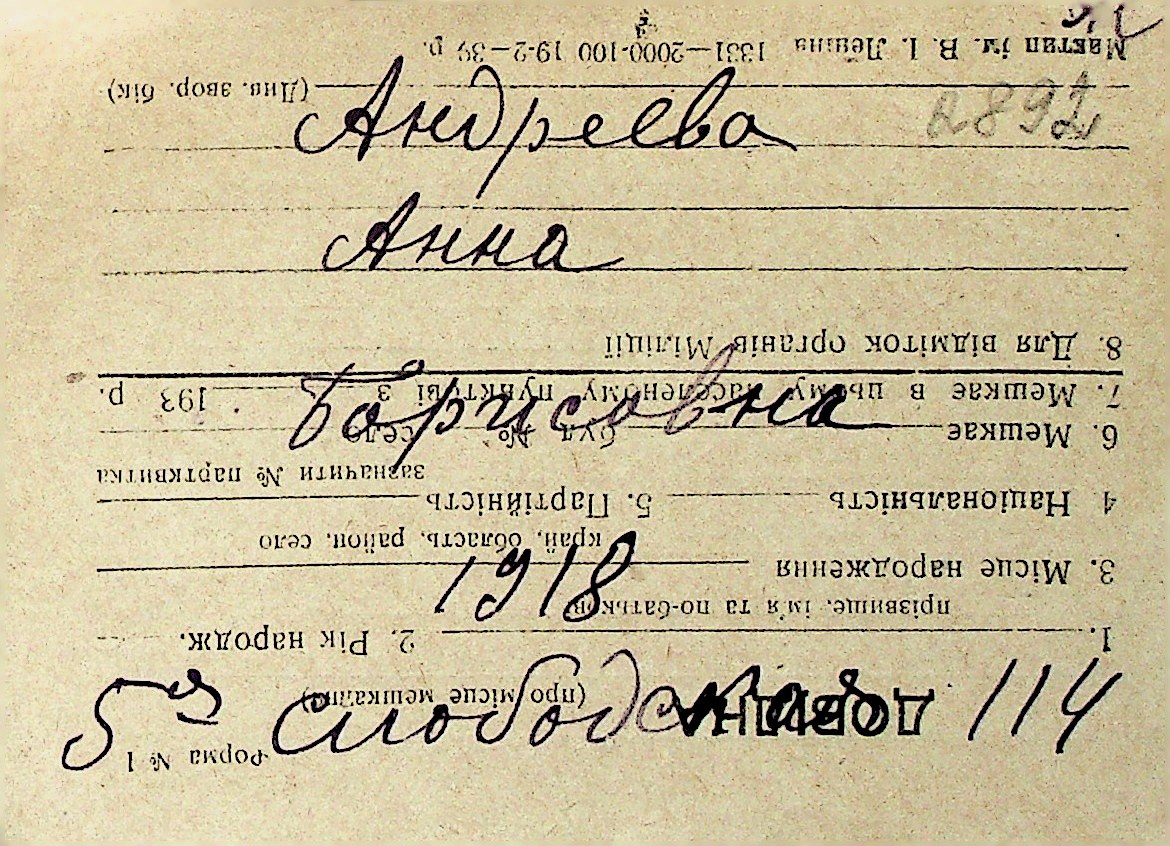 2892
Андреева
Анна
Борисовна
1918
5ая слободская 114
Форма № 1
(про місце мешкання)
1. 2. Рік народж.
прізвище, ім'я та по-батькові
3. Місце народження
край, область, район, село
4 Національність 5. Партійність
зазначити № партквитка
6. Мешкає буд № село
7. Мешкає в цьому населеному пункті з 193 р.
8. Для відміток органів Міліції
(Див. звор. бік)
ім. В. І. Леніна 1331—2000-100 19-2-39 р.